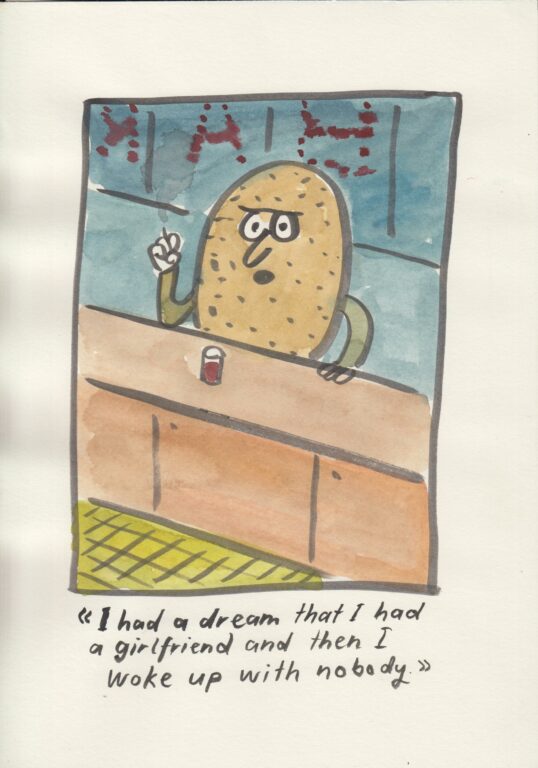 «I had a dream that I had
a girlfriend and then I
woke up with nobody.»